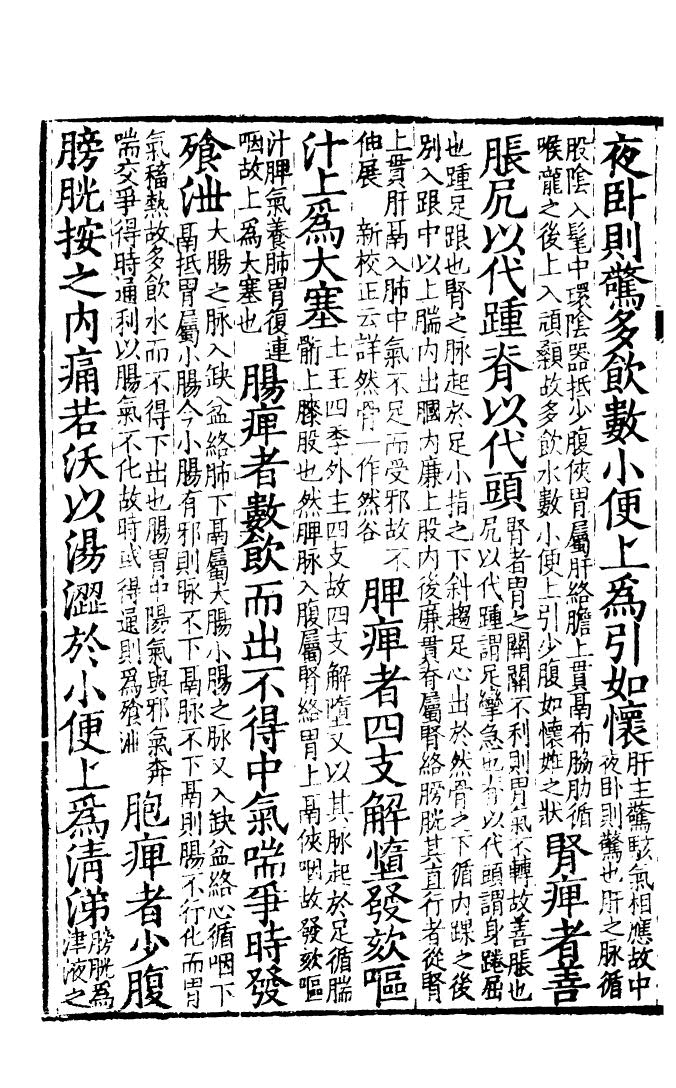 夜卧則驚多飲數小便上爲引如懷
肝主驚駭氣相應故中
夜卧則驚也肝之脉循
股陰入髦中環陰器抵少腹俠胃屬肝絡膽上貫鬲布脇肋循
喉嚨之後上入頏顙故多飲水數小便上引少腹如懷姙之狀
腎痺者善
脹尻以代踵脊以代頭
腎者胃之關關不利則胃氣不轉故善脹也
尻以代踵謂足攣急也脊以代頭謂身踡屈
也踵足跟也腎之脉起於足小指之下斜趨足心出於然骨之下循内踝之後
别入跟中以上腨内出膕内廉上股内後廉貫脊屬腎絡膀胱其直行者從腎
上貫肝鬲入肺中氣不足而受邪故不
伸展 新校正云詳然骨一作然谷
脾痺者四支解墮發欬嘔
汁上爲大塞
土王四季外主四支故四支解墮又以其脉起於足循腨
䯒上膝股也然脾脉入腹屬腎絡胃上鬲俠咽故發欬嘔
汁脾氣養肺胃復連
咽故上爲大塞也
腸痺者數飲而出不得中氣喘爭時發
飱泄
大腸之脉入缺盆絡肺下鬲屬大腸小腸之脉又入缺盆絡心循咽下
鬲抵胃屬小腸今小腸有邪則脉不下鬲脉不下鬲則腸不行化而胃
氣穑熱故多飲水而不得下出也腸胃中陽氣與邪氣奔
喘交爭得時通利以腸氣不化故時或得通則爲飱泄
胞痺者少腹
膀胱按之内痛若沃以湯澀於小便上爲清涕
膀胱爲
津液之